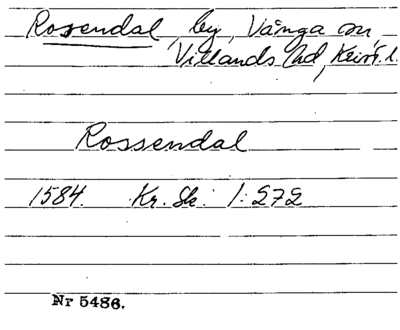 Rosendal, by, Vånga sn,
Villands hd, Krist. l.
Rossendal
1584. Kr. Sk. 1:272
Nr 5486.